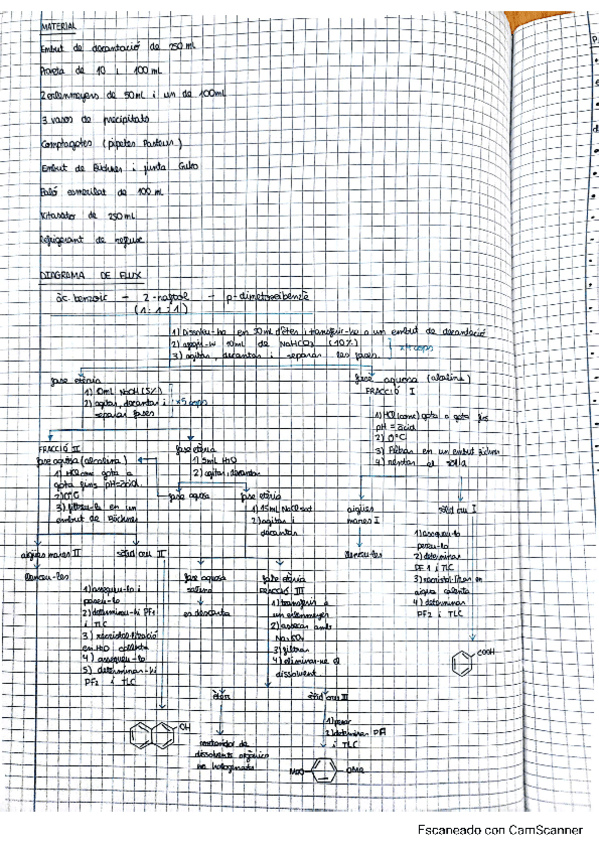 MATERIAL
Embut de decantació de 250 mL
Proveta de 10 i 100 mL
2 erlenmeyers de 50mL i un de 100mL
3 vasos de precipitats
Comptagotes (pipetes Pasteur)
Embut de Büchner i junta Guko
Baló esmerilat de 100 mL
Kitasatos de 250mL
Refrigerant de reflux
DIAGRAMA DE FLUX
àc. benzoic - 2-naftol - p-dimetoxibenzè
(1:1:1)
1) Dissoldre-ho en 50mL d'èter i transferir-ho a un embut de decantació
2) afegir-hi 10mL de NaHCO3 (10%)
3) agitar, decantar i separar les fases.
fase etèria
1) 10mL NaOH (5%)
2) agitar, decantar i
separar fases
x5 cops
fase aquosa (alcalina)
FRACCIÓ I
1) HCl (conc) gota a gota fins
pH = àcid
2) 0°C
3) Filtrar en un embut Büchner
4) rentar el sòlid
FRACCIÓ II
fase aquosa (alcalina)
1) HCl conc gota a
gota fins pH=àcid.
2) 0°C
3) filtrar-lo en un
embut de Büchner
fase etèria
1) 5mL H2O
2) agitar, decantar
fase aquosa
fase etèria
1) 15mL NaCl sat
2) agitar i
decantar
aigües
mares I
llençar-les
sòlid cru I
1) assequeu-lo
peseu-lo
2) determinar
PF 1 i TLC
3) recristal·litzar en
aigua calenta
4) determinar
PF2 i TLC
COOH
aigües mares II
llençar-les
sòlid cru II
1) assequeu-lo i
peseu-lo
2) determineu-hi PF1
i TLC
3) recristal·lització
en H2O calenta
4) assequeu-lo
5) determinar-hi
PF2 i TLC
OH
fase aquosa
salina
es descarta
fase etèria
FRACCIÓ III
1) transferir a
un erlenmeyer
2) assecar amb
3) filtrar
4) eliminar-ne el
dissolvent
èter
contenidor de
dissolvents orgànics
no halogenats
sòlid cru III
1) pesar
2) determinar PF
i TLC
MeO
OMe
Escaneado con CamScanner